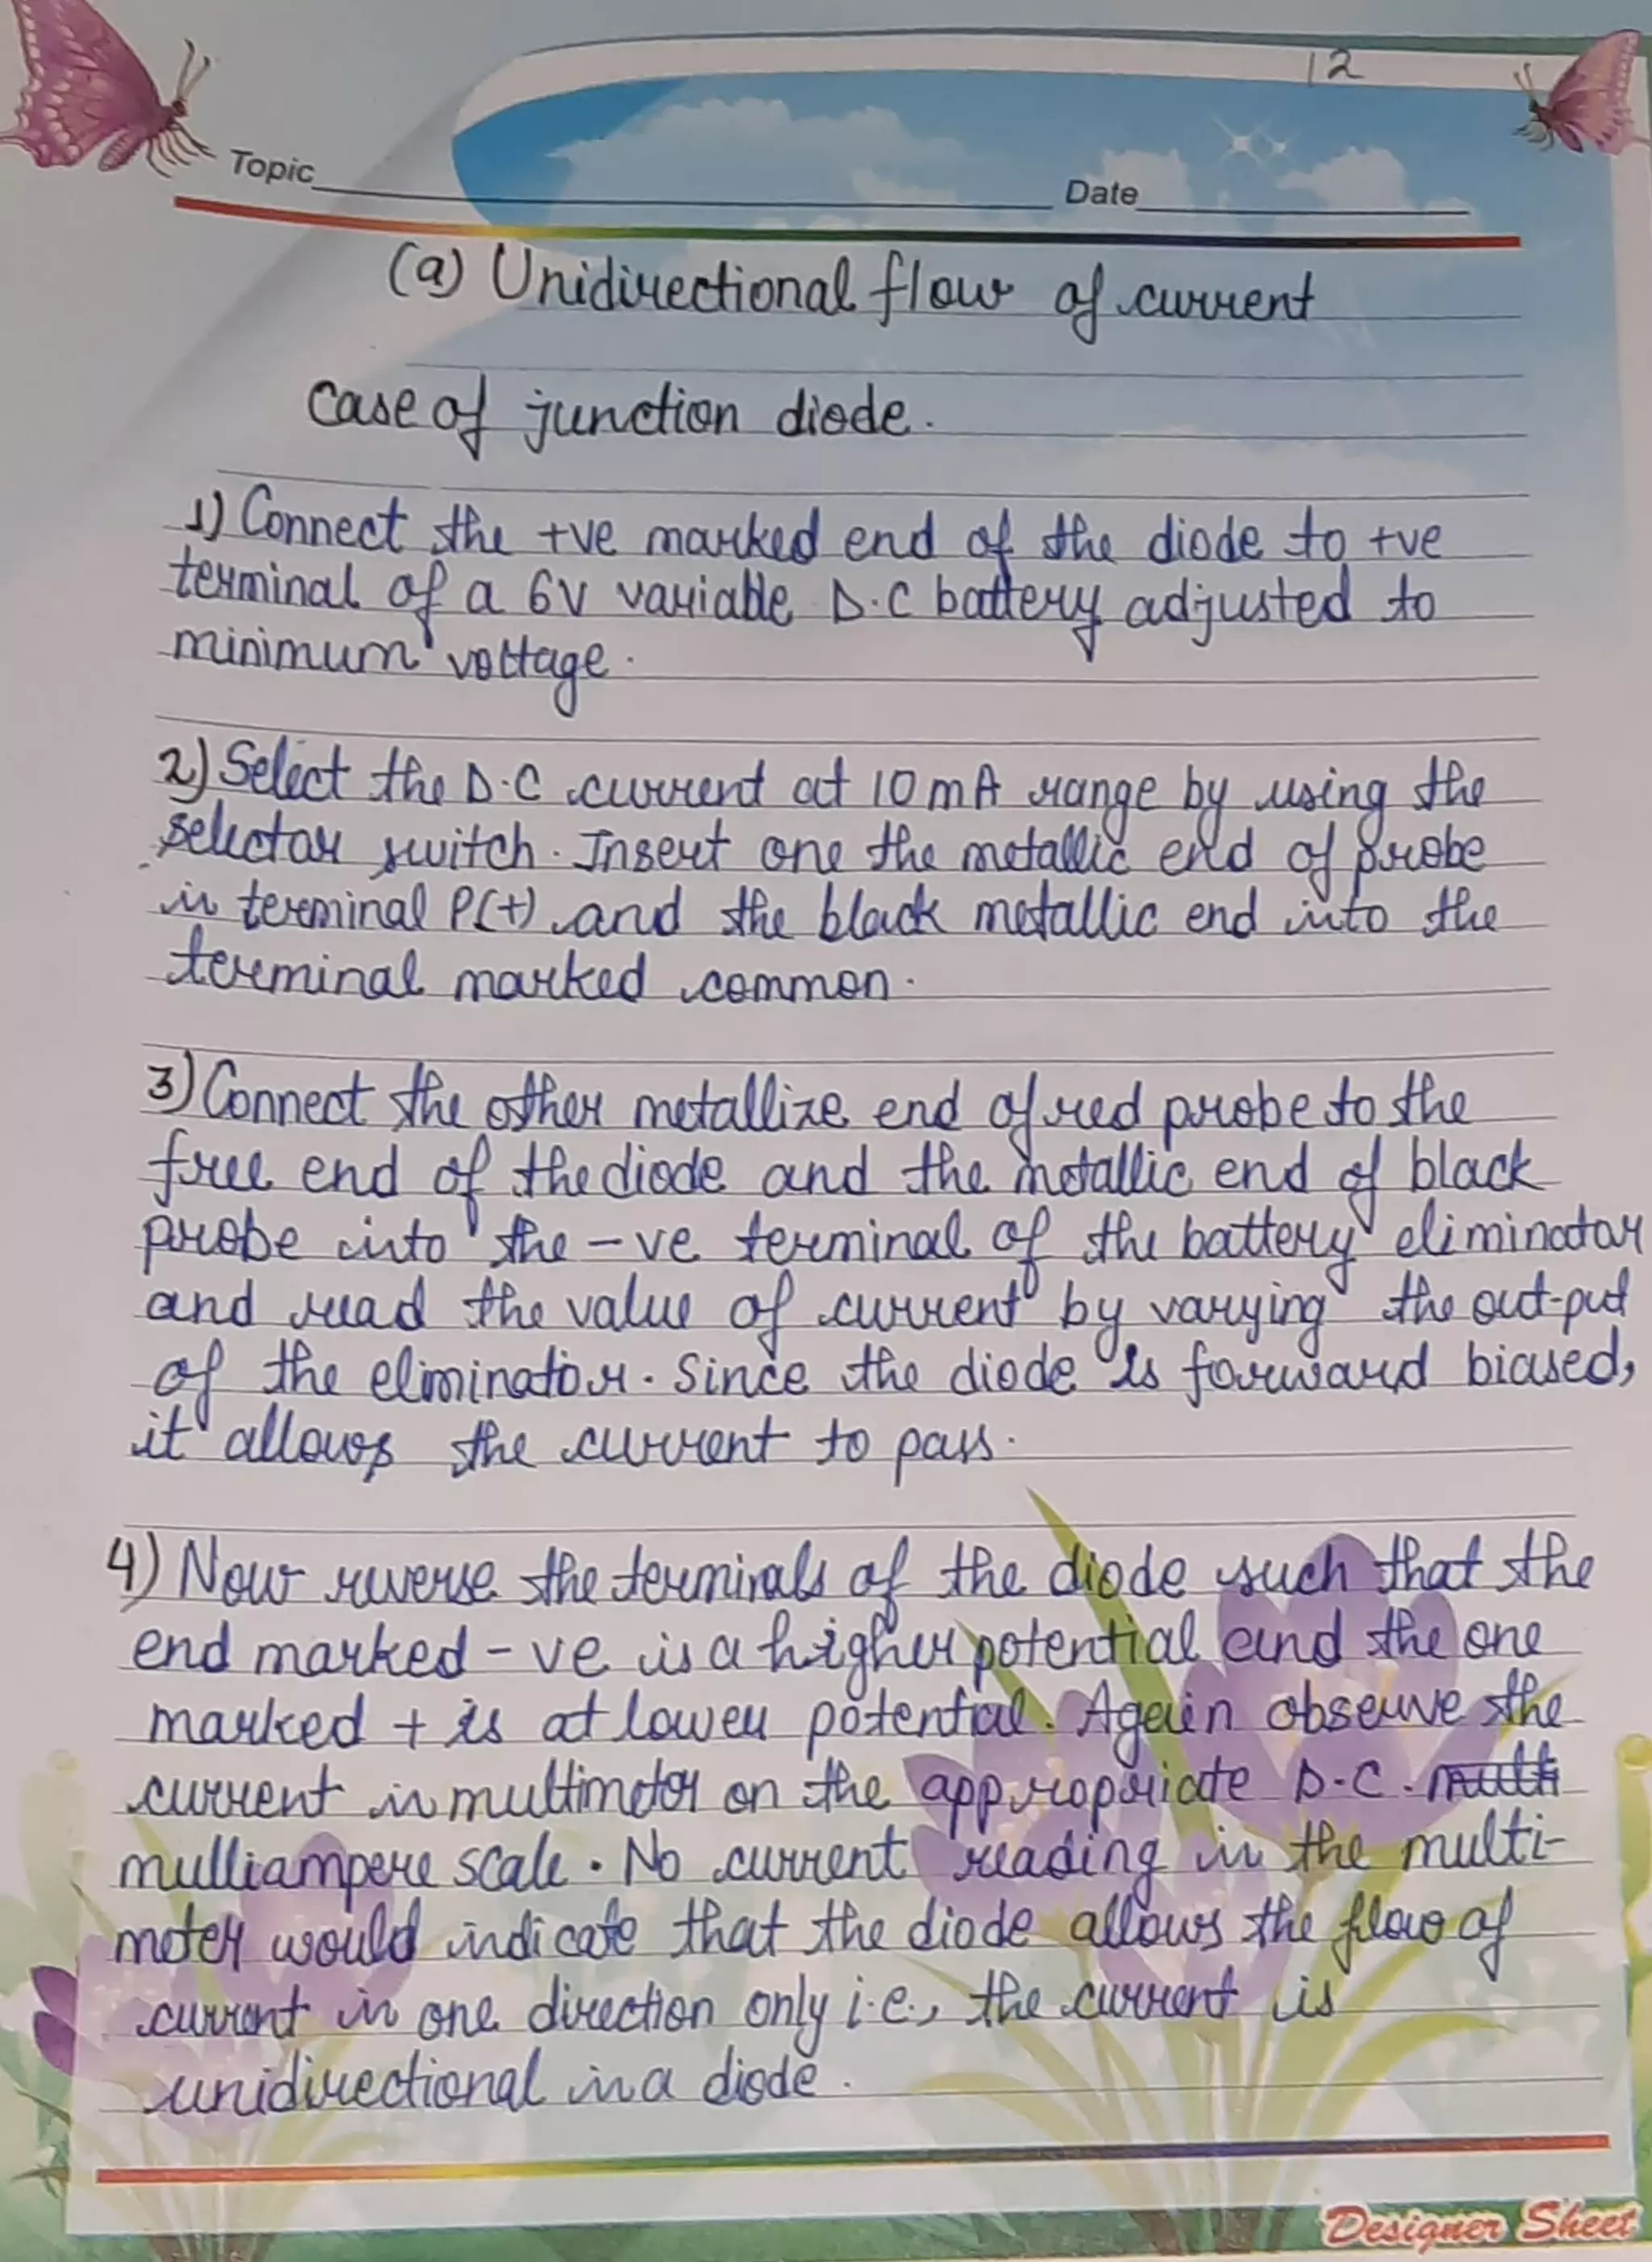 12
Topic
Date
(a) Unidirectional flow of current
case of junction diode.
1) Connect the +ve marked end of the diode to +ve
terminal of a 6V variable D.C battery adjusted to
minimum voltage.
2) Select the D.C current at 10 mA range by using the
selector switch. Insert one the metallic end of probe
in terminal P(+) and the black metallic end into the
terminal marked common.
3) Connect the other metallize end of red probe to the
free end of the diode and the metallic end of black
probe into the -ve terminal of the battery eliminator
and read the value of current by varying the out-put
of the eliminator. Since the diode is forward biased,
it allows the current to pass.
4) Now reverse the terminals of the diode such that the
end marked -ve is a higher potential and the one
marked + is at lower potential. Again observe the
current in multimeter on the appropriate D.C.
mulliampere scale. No current reading in the multi-
meter would indicate that the diode allows the flow of
current in one direction only i.e., the current is
unidirectional in a diode.
Designer Sheet